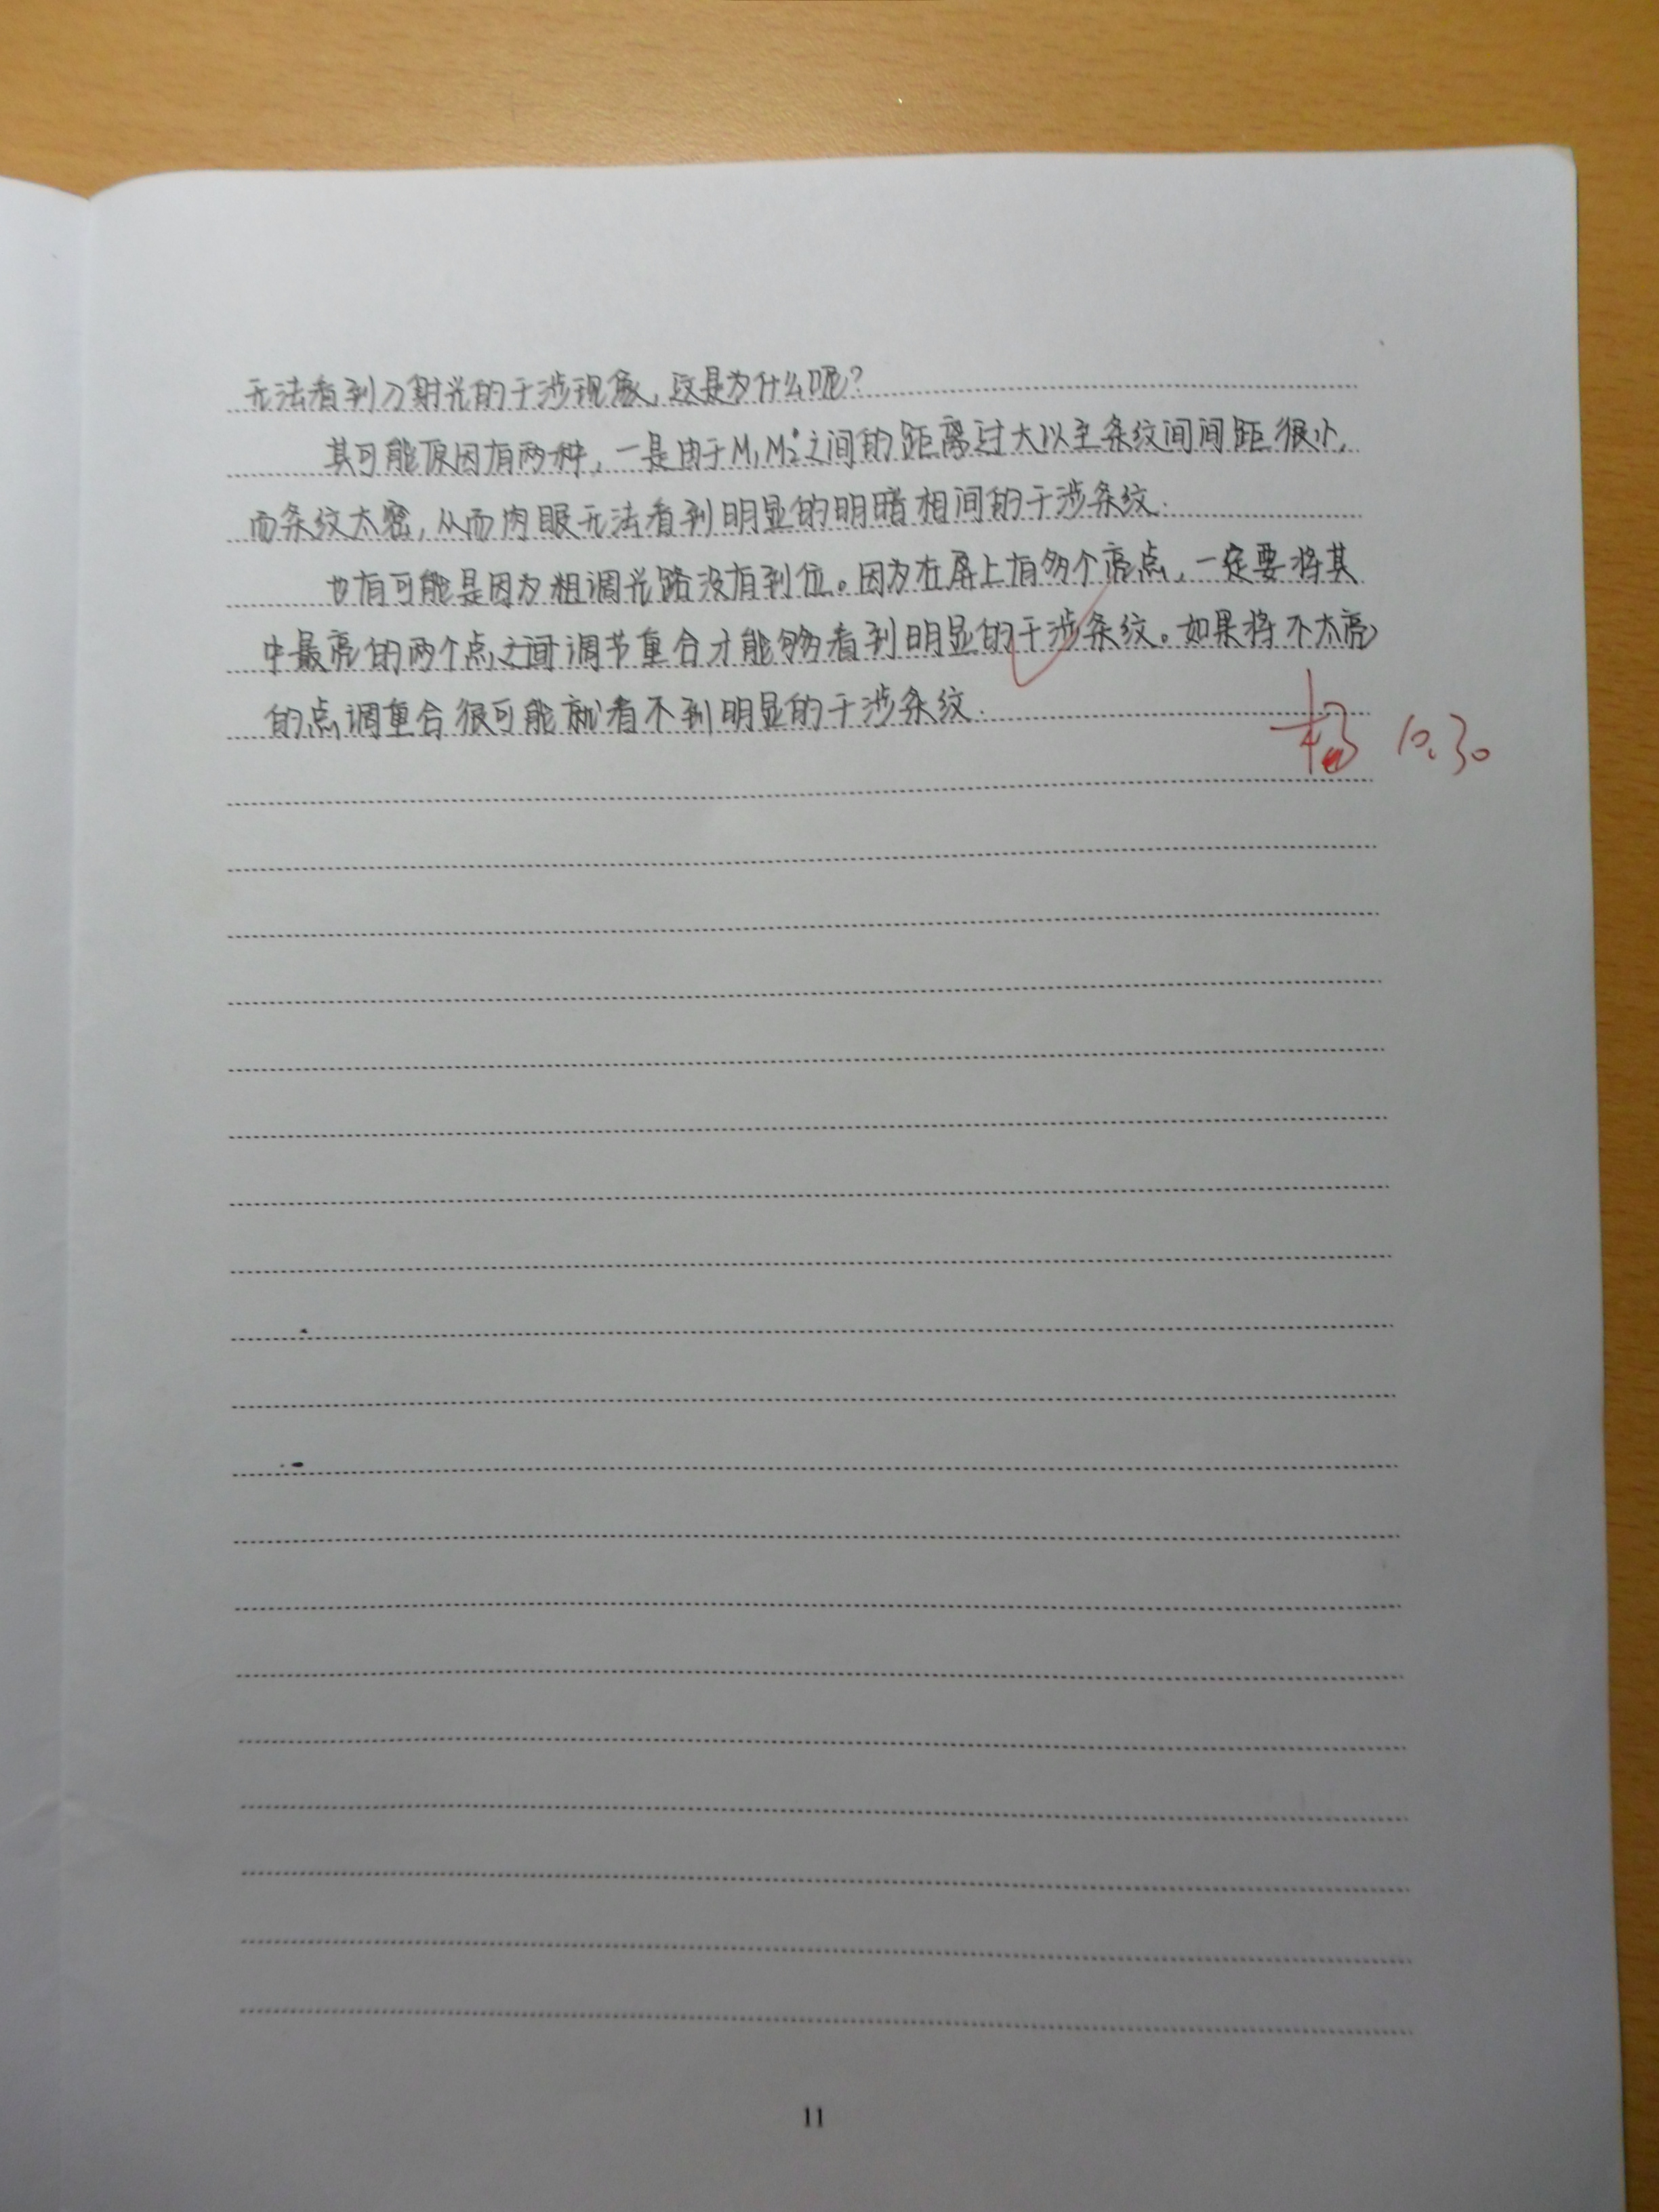 无法看到入射光的干涉现象，这是为什么呢？
其可能原因有两种，一是由于M₁M₂'之间的距离过大以至条纹间间距很小，
而条纹太密，从而肉眼无法看到明显的明暗相间的干涉条纹．
也有可能是因为粗调光路没有到位。因为在屏上有多个亮点，一定要将其
中最亮的两个点之间调节重合才能够看到明显的干涉条纹。如果将不太亮
的点调重合很可能就看不到明显的干涉条纹．
杨 10.30
11